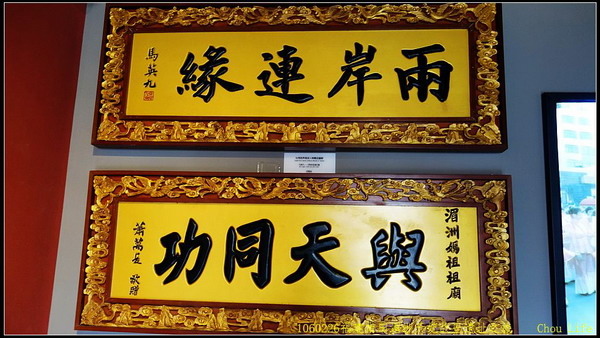 兩岸連緣
馬英九
湄洲媽祖祖廟
與天同功
蕭萬長 敬贈
1060226
Chou